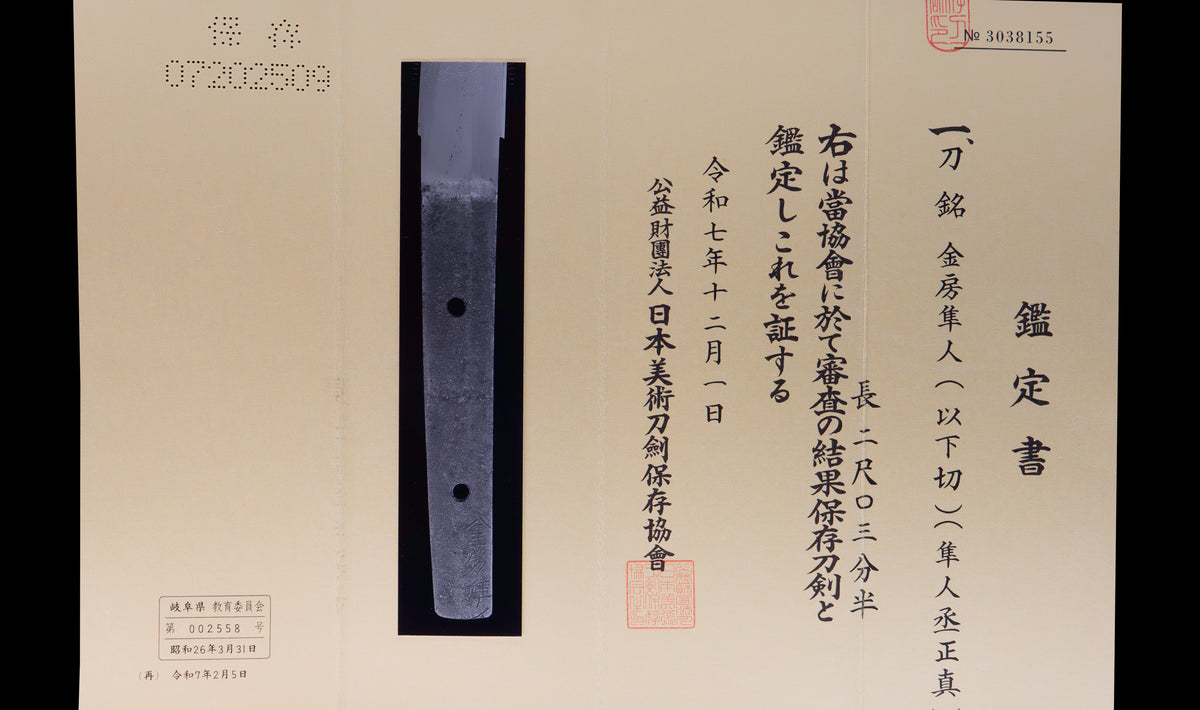 № 3038155
鑑定書
一、刀 銘 金房隼人(以下切)(隼人丞正真
長 二尺〇三分半
右は當協會に於て審査の結果保存刀剣と
鑑定しこれを証する
令和七年十二月一日
公益財團法人 日本美術刀劍保存協會
保存
07202509
岐阜県 教育委員会
第 002558 号
昭和26年3月31日
(再) 令和7年2月5日